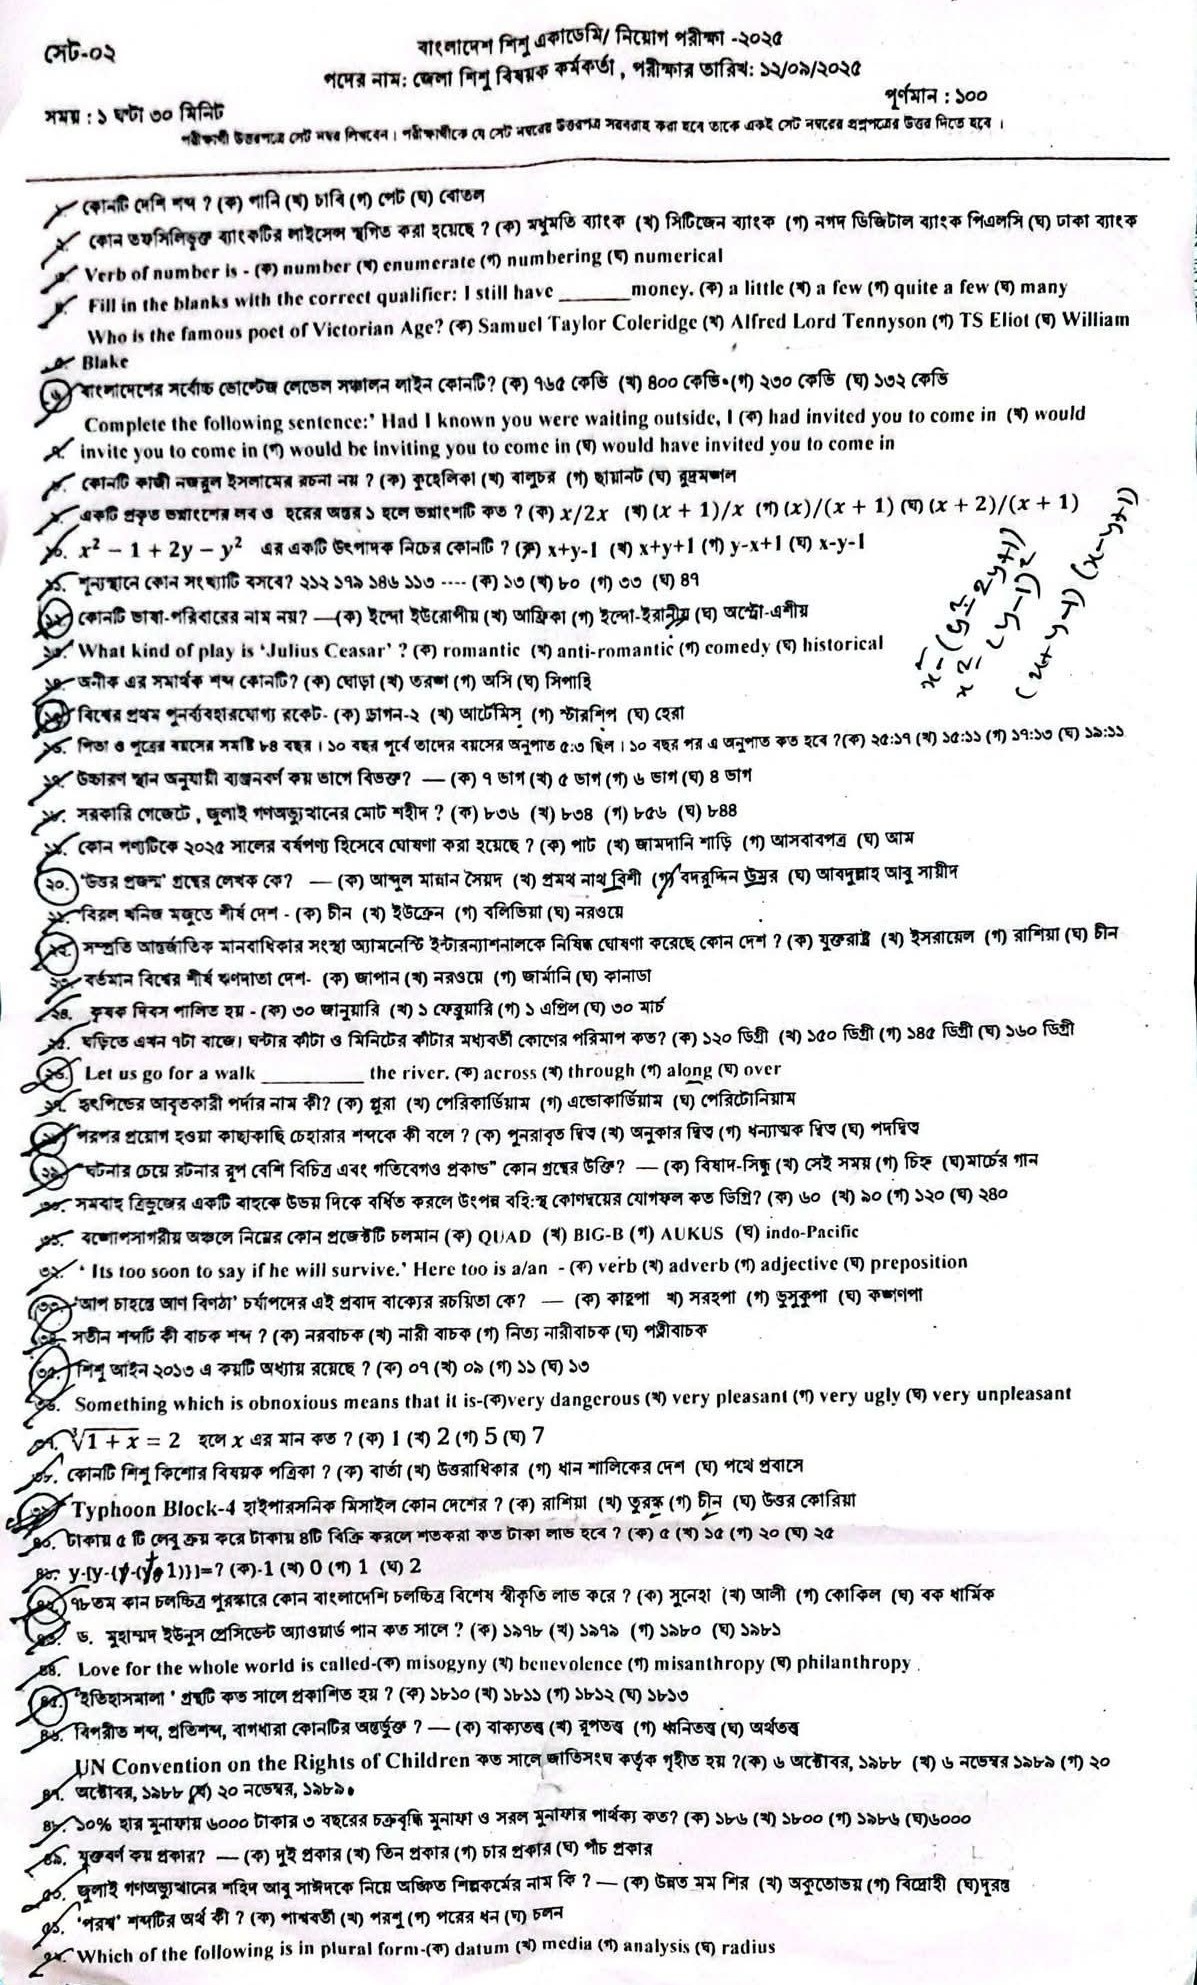 সেট-০২
বাংলাদেশ শিশু একাডেমি/ নিয়োগ পরীক্ষা -২০২৫
পদের নাম: জেলা শিশু বিষয়ক কর্মকর্তা , পরীক্ষার তারিখ: ১২/০৯/২০২৫
সময় : ১ ঘণ্টা ৩০ মিনিট
পূর্ণমান : ১০০
পরীক্ষার্থী উত্তরপত্রে সেট নম্বর লিখবেন। পরীক্ষার্থীকে যে সেট নম্বরের উত্তরপত্র সরবরাহ করা হবে তাকে একই সেট নম্বরের প্রশ্নপত্রের উত্তর দিতে হবে ।
১. কোনটি দেশি শব্দ ? (ক) পানি (খ) চাবি (গ) পেট (ঘ) বোতল
২. কোন তফসিলিভুক্ত ব্যাংকটির লাইসেন্স স্থগিত করা হয়েছে ? (ক) মধুমতি ব্যাংক (খ) সিটিজেন ব্যাংক (গ) নগদ ডিজিটাল ব্যাংক পিএলসি (ঘ) ঢাকা ব্যাংক
৩. Verb of number is - (ক) number (খ) enumerate (গ) numbering (ঘ) numerical
৪. Fill in the blanks with the correct qualifier: I still have ________money. (ক) a little (খ) a few (গ) quite a few (ঘ) many
Who is the famous poet of Victorian Age? (ক) Samuel Taylor Coleridge (খ) Alfred Lord Tennyson (গ) TS Eliot (ঘ) William
৫. Blake
৬. বাংলাদেশের সর্বোচ্চ ভোল্টেজ লেভেল সঞ্চালন লাইন কোনটি? (ক) ৭৬৫ কেভি (খ) ৪০০ কেভি (গ) ২৩০ কেভি (ঘ) ১৩২ কেভি
Complete the following sentence:' Had I known you were waiting outside, I (ক) had invited you to come in (খ) would
৭. invite you to come in (গ) would be inviting you to come in (ঘ) would have invited you to come in
৮. কোনটি কাজী নজরুল ইসলামের রচনা নয় ? (ক) কুহেলিকা (খ) বালুচর (গ) ছায়ানট (ঘ) রুদ্রমঙ্গল
৯. একটি প্রকৃত ভগ্নাংশের লব ও হরের অন্তর ১ হলে ভগ্নাংশটি কত ? (ক) x/2x (খ) (x + 1)/x (গ) (x)/(x + 1) (ঘ) (x + 2)/(x + 1)
১০. x² − 1 + 2y − y² এর একটি উৎপাদক নিচের কোনটি ? (ক) x+y-1 (খ) x+y+1 (গ) y-x+1 (ঘ) x-y-1
১১. শূন্যস্থানে কোন সংখ্যাটি বসবে? ২১২ ১৭৯ ১৪৬ ১১৩ ---- (ক) ১৩ (খ) ৮০ (গ) ৩৩ (ঘ) ৪৭
১২. কোনটি ভাষা-পরিবারের নাম নয়? —(ক) ইন্দো ইউরোপীয় (খ) আফ্রিকা (গ) ইন্দো-ইরানীয় (ঘ) অস্ট্রো-এশীয়
১৩. What kind of play is ‘Julius Ceasar’ ? (ক) romantic (খ) anti-romantic (গ) comedy (ঘ) historical
x²-(y²-2y+1)
x²-(y-1)²
(x+y-1) (x-y+1)
১৪. অনীক এর সমার্থক শব্দ কোনটি? (ক) ঘোড়া (খ) তরঙ্গ (গ) অসি (ঘ) সিপাহি
১৫. বিশ্বের প্রথম পুনর্ব্যবহারযোগ্য রকেট- (ক) ড্রাগন-২ (খ) আর্টেমিস (গ) স্টারশিপ (ঘ) হেরা
১৬. পিতা ও পুত্রের বয়সের সমষ্টি ৮৪ বছর । ১০ বছর পূর্বে তাদের বয়সের অনুপাত ৫:৩ ছিল। ১০ বছর পর এ অনুপাত কত হবে ?(ক) ২৫:১৭ (খ) ১৫:১১ (গ) ১৭:১৩ (ঘ) ১৯:১১
১৭. উচ্চারণ স্থান অনুযায়ী ব্যঞ্জনবর্ণ কয় ভাগে বিভক্ত? — (ক) ৭ ভাগ (খ) ৫ ভাগ (গ) ৬ ভাগ (ঘ) ৪ ভাগ
১৮. সরকারি গেজেটে , জুলাই গণঅভ্যুত্থানের মোট শহীদ ? (ক) ৮৩৬ (খ) ৮৩৪ (গ) ৮৫৬ (ঘ) ৮৪৪
১৯. কোন পণ্যটিকে ২০২৫ সালের বর্ষপণ্য হিসেবে ঘোষণা করা হয়েছে ? (ক) পাট (খ) জামদানি শাড়ি (গ) আসবাবপত্র (ঘ) আম
২০. ‘উত্তর প্রজন্ম’ গ্রন্থের লেখক কে? — (ক) আব্দুল মান্নান সৈয়দ (খ) প্রমথ নাথ বিশী (গ) বদরুদ্দিন উমর (ঘ) আবদুল্লাহ আবু সায়ীদ
২১. বিরল খনিজ মজুতে শীর্ষ দেশ - (ক) চীন (খ) ইউক্রেন (গ) বলিভিয়া (ঘ) নরওয়ে
২২. সম্প্রতি আন্তর্জাতিক মানবাধিকার সংস্থা অ্যামনেস্টি ইন্টারন্যাশনালকে নিষিদ্ধ ঘোষণা করেছে কোন দেশ ? (ক) যুক্তরাষ্ট্র (খ) ইসরায়েল (গ) রাশিয়া (ঘ) চীন
২৩. বর্তমান বিশ্বের শীর্ষ ঋণদাতা দেশ- (ক) জাপান (খ) নরওয়ে (গ) জার্মানি (ঘ) কানাডা
২৪. কৃষক দিবস পালিত হয় - (ক) ৩০ জানুয়ারি (খ) ১ ফেব্রুয়ারি (গ) ১ এপ্রিল (ঘ) ৩০ মার্চ
২৫. ঘড়িতে এখন ৭টা বাজে। ঘন্টার কাঁটা ও মিনিটের কাঁটার মধ্যবর্তী কোণের পরিমাপ কত? (ক) ১২০ ডিগ্রী (খ) ১৫০ ডিগ্রী (গ) ১৪৫ ডিগ্রী (ঘ) ১৬০ ডিগ্রী
২৬. Let us go for a walk __________ the river. (ক) across (খ) through (গ) along (ঘ) over
২৭. হৃৎপিন্ডের আবৃতকারী পর্দার নাম কী? (ক) প্লুরা (খ) পেরিকার্ডিয়াম (গ) এন্ডোকার্ডিয়াম (ঘ) পেরিটোনিয়াম
২৮. পরপর প্রয়োগ হওয়া কাছাকাছি চেহারার শব্দকে কী বলে ? (ক) পুনরাবৃত্ত দ্বিত্ব (খ) অনুকার দ্বিত্ব (গ) ধন্যাত্মক দ্বিত্ব (ঘ) পদদ্বিত্ব
২৯. “ঘটনার চেয়ে রটনার রূপ বেশি বিচিত্র এবং গতিবেগও প্রকান্ড” কোন গ্রন্থের উক্তি? — (ক) বিষাদ-সিন্ধু (খ) সেই সময় (গ) চিহ্ন (ঘ)মার্চের গান
৩০. সমবাহু ত্রিভুজের একটি বাহুকে উভয় দিকে বর্ধিত করলে উৎপন্ন বহি:স্থ কোণদ্বয়ের যোগফল কত ডিগ্রি? (ক) ৬০ (খ) ৯০ (গ) ১২০ (ঘ) ২৪০
৩১. বঙ্গোপসাগরীয় অঞ্চলে নিম্নের কোন প্রজেক্টটি চলমান (ক) QUAD (খ) BIG-B (গ) AUKUS (ঘ) indo-Pacific
৩২. ‘ Its too soon to say if he will survive.’ Here too is a/an - (ক) verb (খ) adverb (গ) adjective (ঘ) preposition
৩৩. ‘আপ চাহন্তে আণ বিণঠা’ চর্যাপদের এই প্রবাদ বাক্যের রচয়িতা কে? — (ক) কাহ্নপা খ) সরহপা (গ) ভুসুকুপা (ঘ) কঙ্কণপা
৩৪. সতীন শব্দটি কী বাচক শব্দ ? (ক) নরবাচক (খ) নারী বাচক (গ) নিত্য নারীবাচক (ঘ) পত্নীবাচক
৩৫. শিশু আইন ২০১৩ এ কয়টি অধ্যায় রয়েছে ? (ক) ০৭ (খ) ০৯ (গ) ১১ (ঘ) ১৩
৩৬. Something which is obnoxious means that it is-(ক)very dangerous (খ) very pleasant (গ) very ugly (ঘ) very unpleasant
৩৭. ∛1 + x = 2 হলে x এর মান কত ? (ক) 1 (খ) 2 (গ) 5 (ঘ) 7
৩৮. কোনটি শিশু কিশোর বিষয়ক পত্রিকা ? (ক) বার্তা (খ) উত্তরাধিকার (গ) ধান শালিকের দেশ (ঘ) পথে প্রবাসে
৩৯. Typhoon Block-4 হাইপারসনিক মিসাইল কোন দেশের ? (ক) রাশিয়া (খ) তুরস্ক (গ) চীন (ঘ) উত্তর কোরিয়া
৪০. টাকায় ৫ টি লেবু ক্রয় করে টাকায় ৪টি বিক্রি করলে শতকরা কত টাকা লাভ হবে ? (ক) ৫ (খ) ১৫ (গ) ২০ (ঘ) ২৫
৪১. y-[y-{y-(y+1)}]=? (ক)-1 (খ) 0 (গ) 1 (ঘ) 2
৪২. ৭৮তম কান চলচ্চিত্র পুরস্কারে কোন বাংলাদেশি চলচ্চিত্র বিশেষ স্বীকৃতি লাভ করে ? (ক) সুনেহা (খ) আলী (গ) কোকিল (ঘ) বক ধার্মিক
৪৩. ড. মুহাম্মদ ইউনুস প্রেসিডেন্ট অ্যাওয়ার্ড পান কত সালে ? (ক) ১৯৭৮ (খ) ১৯৭৯ (গ) ১৯৮০ (ঘ) ১৯৮১
৪৪. Love for the whole world is called-(ক) misogyny (খ) benevolence (গ) misanthropy (ঘ) philanthropy .
৪৫. ‘ইতিহাসমালা ’ গ্রন্থটি কত সালে প্রকাশিত হয় ? (ক) ১৮১০ (খ) ১৮১১ (গ) ১৮১২ (ঘ) ১৮১৩
৪৬. বিপরীত শব্দ, প্রতিশব্দ, বাগধারা কোনটির অন্তর্ভুক্ত ? — (ক) বাক্যতত্ত্ব (খ) রূপতত্ত্ব (গ) ধ্বনিতত্ত্ব (ঘ) অর্থতত্ত্ব
UN Convention on the Rights of Children কত সালে জাতিসংঘ কর্তৃক গৃহীত হয় ?(ক) ৬ অক্টোবর, ১৯৮৮ (খ) ৬ নভেম্বর ১৯৮৯ (গ) ২০
৪৭. অক্টোবর, ১৯৮৮ (ঘ) ২০ নভেম্বর, ১৯৮৯।
৪৮. ১০% হার মুনাফায় ৬০০০ টাকার ৩ বছরের চক্রবৃদ্ধি মুনাফা ও সরল মুনাফার পার্থক্য কত? (ক) ১৮৬ (খ) ১৮০০ (গ) ১৯৮৬ (ঘ)৬০০০
৪৯. যুক্তবর্ণ কয় প্রকার? — (ক) দুই প্রকার (খ) তিন প্রকার (গ) চার প্রকার (ঘ) পাঁচ প্রকার
৫০. জুলাই গণঅভ্যুত্থানের শহিদ আবু সাঈদকে নিয়ে অঙ্কিত শিল্পকর্মের নাম কি ? — (ক) উন্নত মম শির (খ) অকুতোভয় (গ) বিদ্রোহী (ঘ)দুরন্ত
৫১. ‘পরশ্ব’ শব্দটির অর্থ কী ? (ক) পার্শ্ববর্তী (খ) পরশু (গ) পরের ধন (ঘ) চলন
৫২. Which of the following is in plural form-(ক) datum (খ) media (গ) analysis (ঘ) radius